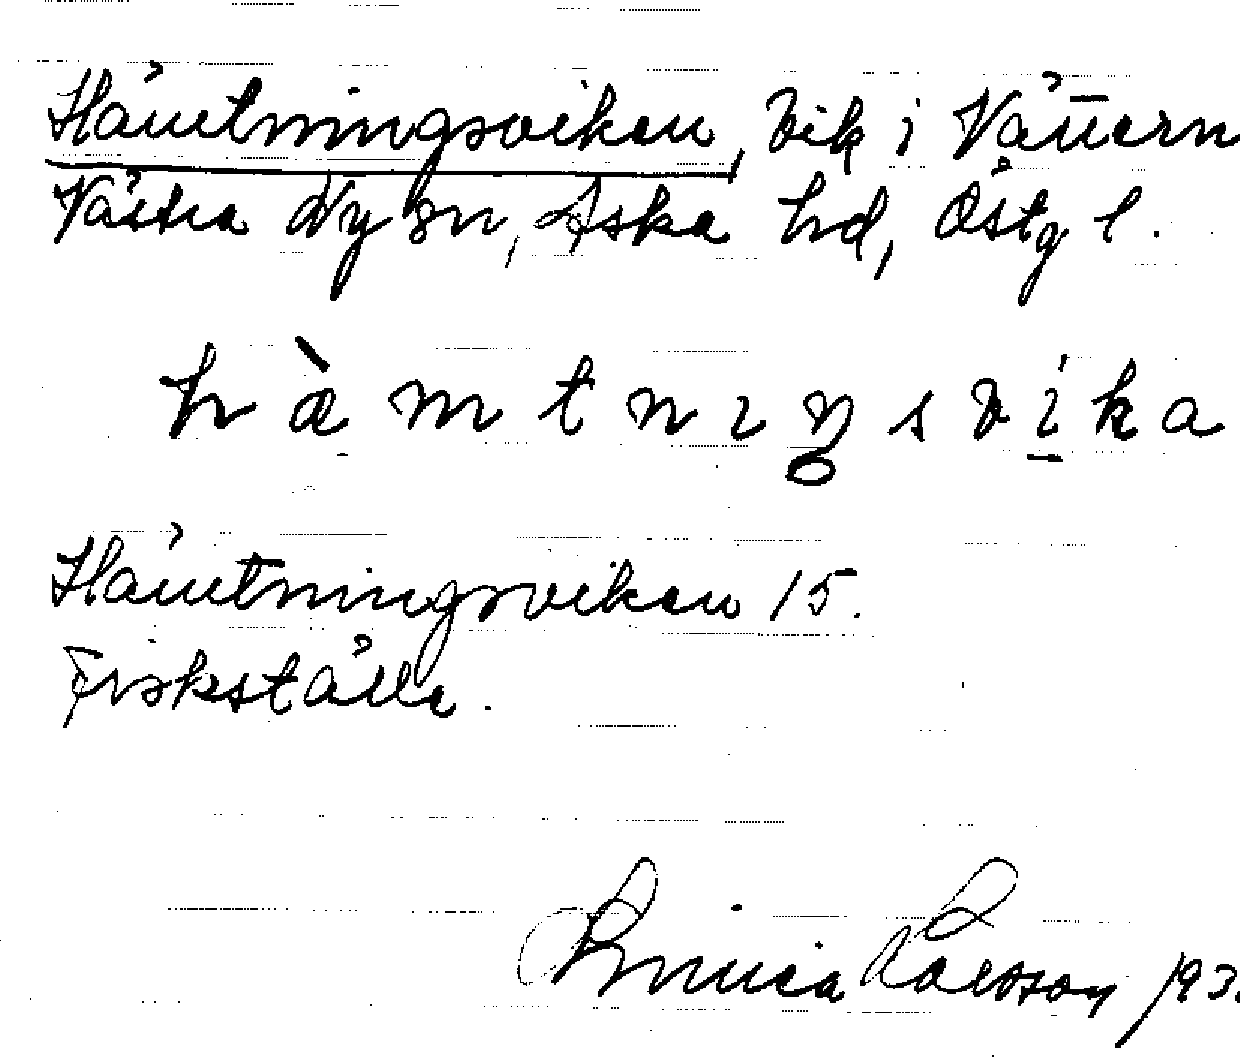 Hämtningsviken, Vik i Vättern
Västra Ny sn, Aska hd, Östg l.
h æ̀ m t n ɪ ŋ̥ s v i̱ k a
Hämtningsviken 15.
Fiskställe.
193